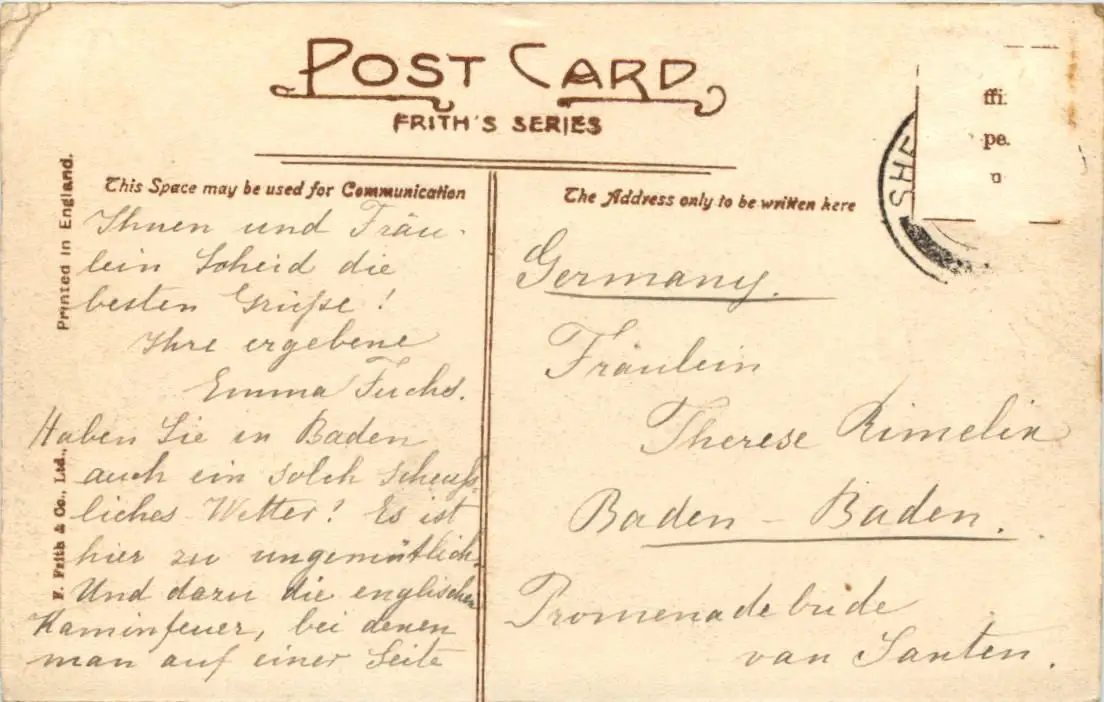 POST CARD
FRITH'S SERIES
This Space may be used for Communication
The Address only to be written here
Printed in England.
F. Frith & Co., Ltd.,
SHE
ffi
pe.
u
Ihnen und Fräu-
lein Scheid die
besten Grüße!
Ihre ergebene
Emma Fuchs.
Haben Sie in Baden
auch ein solch scheuß-
liches Wetter! Es ist
hier zu ungemütlich.
Und dazu die englischen
Kaminfeuer, bei denen
man auf einer Seite
Germany.
Fräulein
Therese Rimelin
Baden-Baden.
Promenadebude
van Santen.